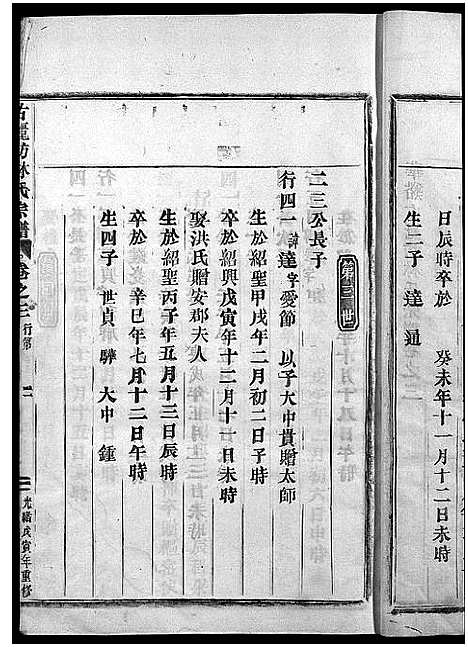 日辰時卒於 癸未年十一月十二日未時
生二子 達 通
第三世
二三公長子
行四一 諱達 字愛節 以子大中貴贈太師
生於紹聖甲戌年二月初二日子時
卒於紹興戊寅年十二月十一日未時
娶洪氏贈安郡夫人
生於紹聖丙子年五月十三日辰時
卒於 辛巳年七月十二日午時
生四子 世貞 驊 大中 鍾
林氏宗譜 卷之三 行第 二 光緒戊寅年重修